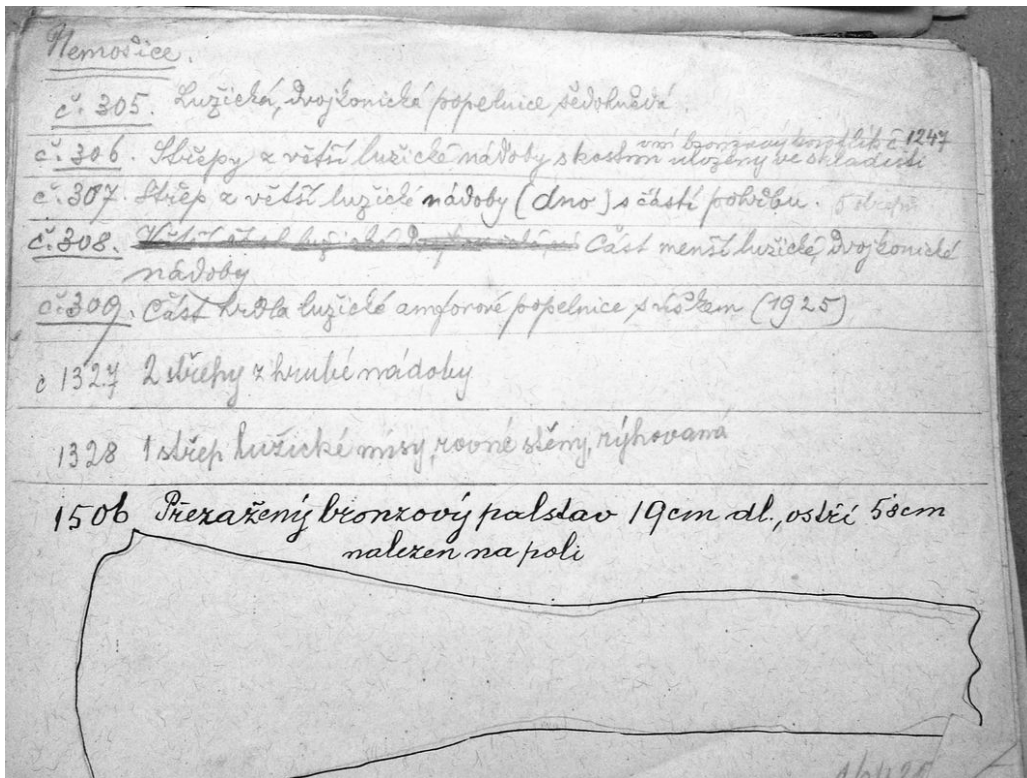 Nemošice.
č. 305. Lužická, dvojkonická popelnice šedohnědá.
v ní bronzový č 1247
č. 306. Střepy z větší lužické nádoby s kostmi uloženy ve skladišti
č. 307. Střep z větší lužické nádoby (dno) s částí pohřbu. 5 střepů
č. 308. Část menší lužické, dvojkonické
nádoby
č. 309. Část hrdla lužické amforové popelnice s úškem (1925)
č 1327 2 střepy z hrubé nádoby
1328 1 střep lužické mísy, rovné stěny, rýhovaná
1506 Přeražený bronzový palstav 19cm dl., ostří 58cm
nalezen na poli